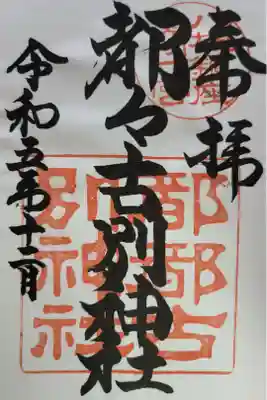 奉拝
都々古別神社
令和五年十二月
都都古
別神社